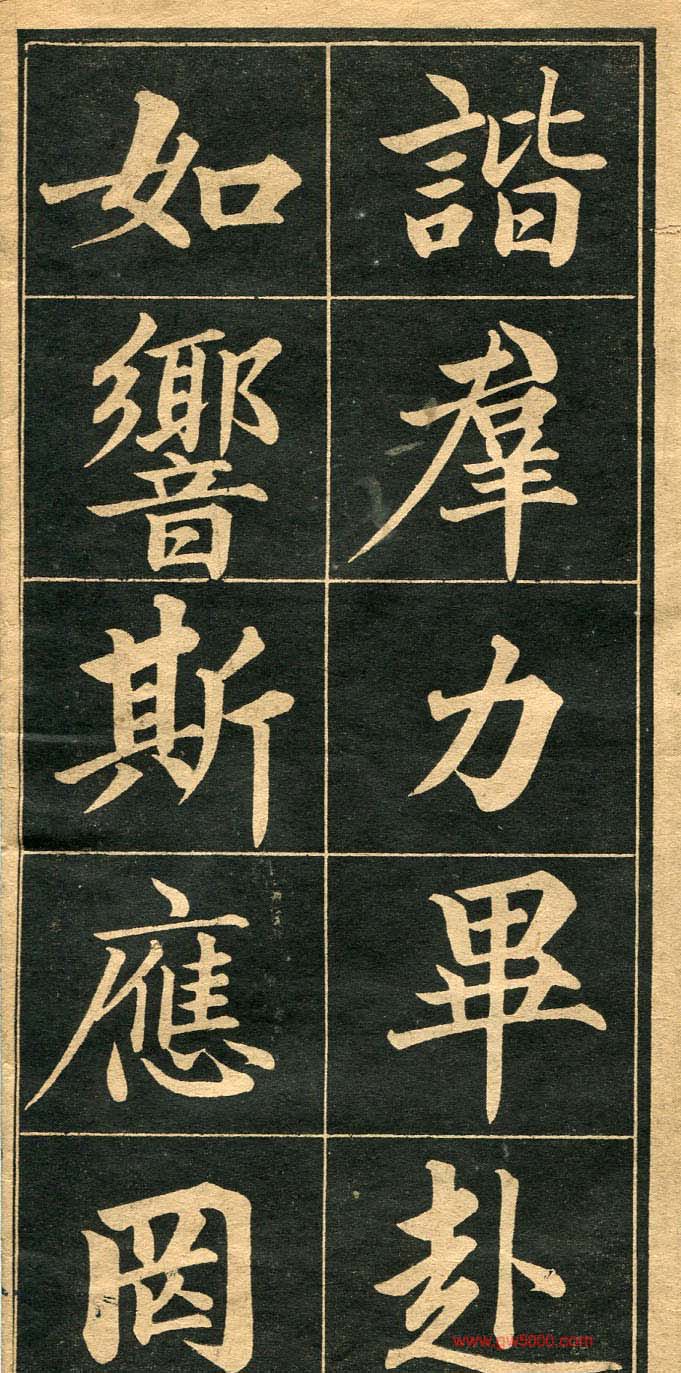 諧羣力畢赴
如響斯應罔
www.gw9000.com